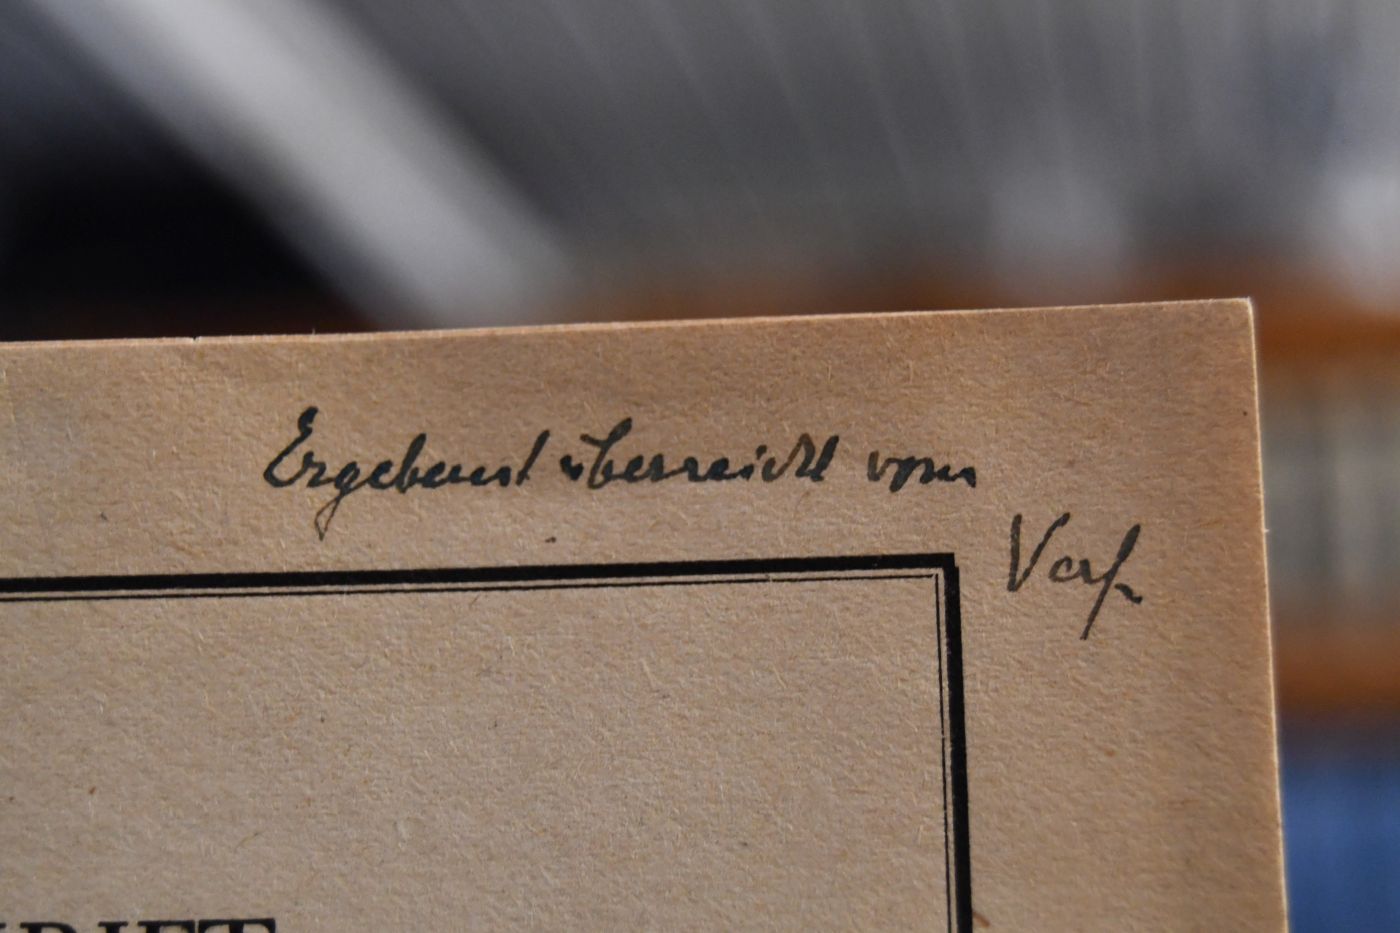 Ergebenst überreicht vom
Verf.
RIFT